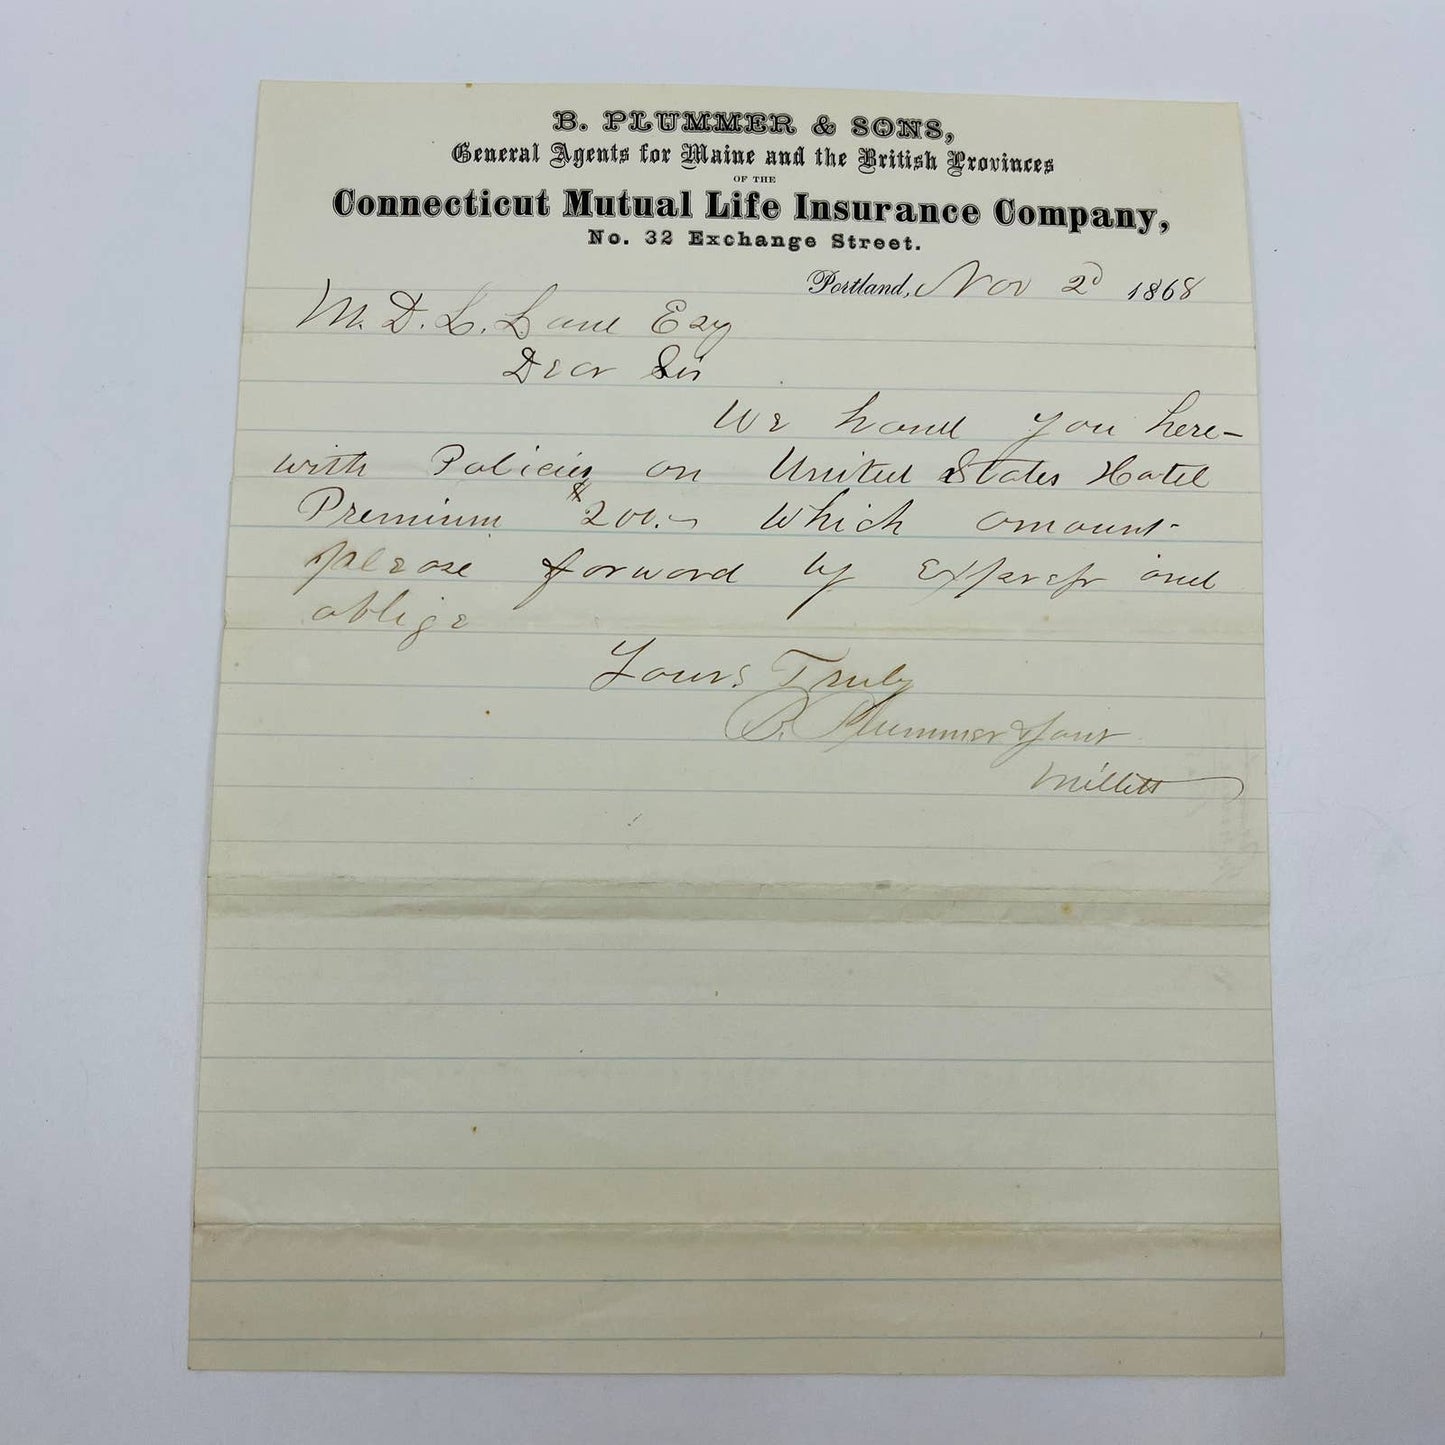 B. PLUMMER & SONS,
General Agents for Maine and the British Provinces
OF THE
Connecticut Mutual Life Insurance Company,
No. 32 Exchange Street.
Portland, Nov 2d 1868
M. D. L. Lane Esq
Dear Sir
We hand you here-
with Policies on United States Hotel
Premium $200.- Which amount
please forward by express and
oblige
Yours Truly
B. Plummer & Sons
Millett